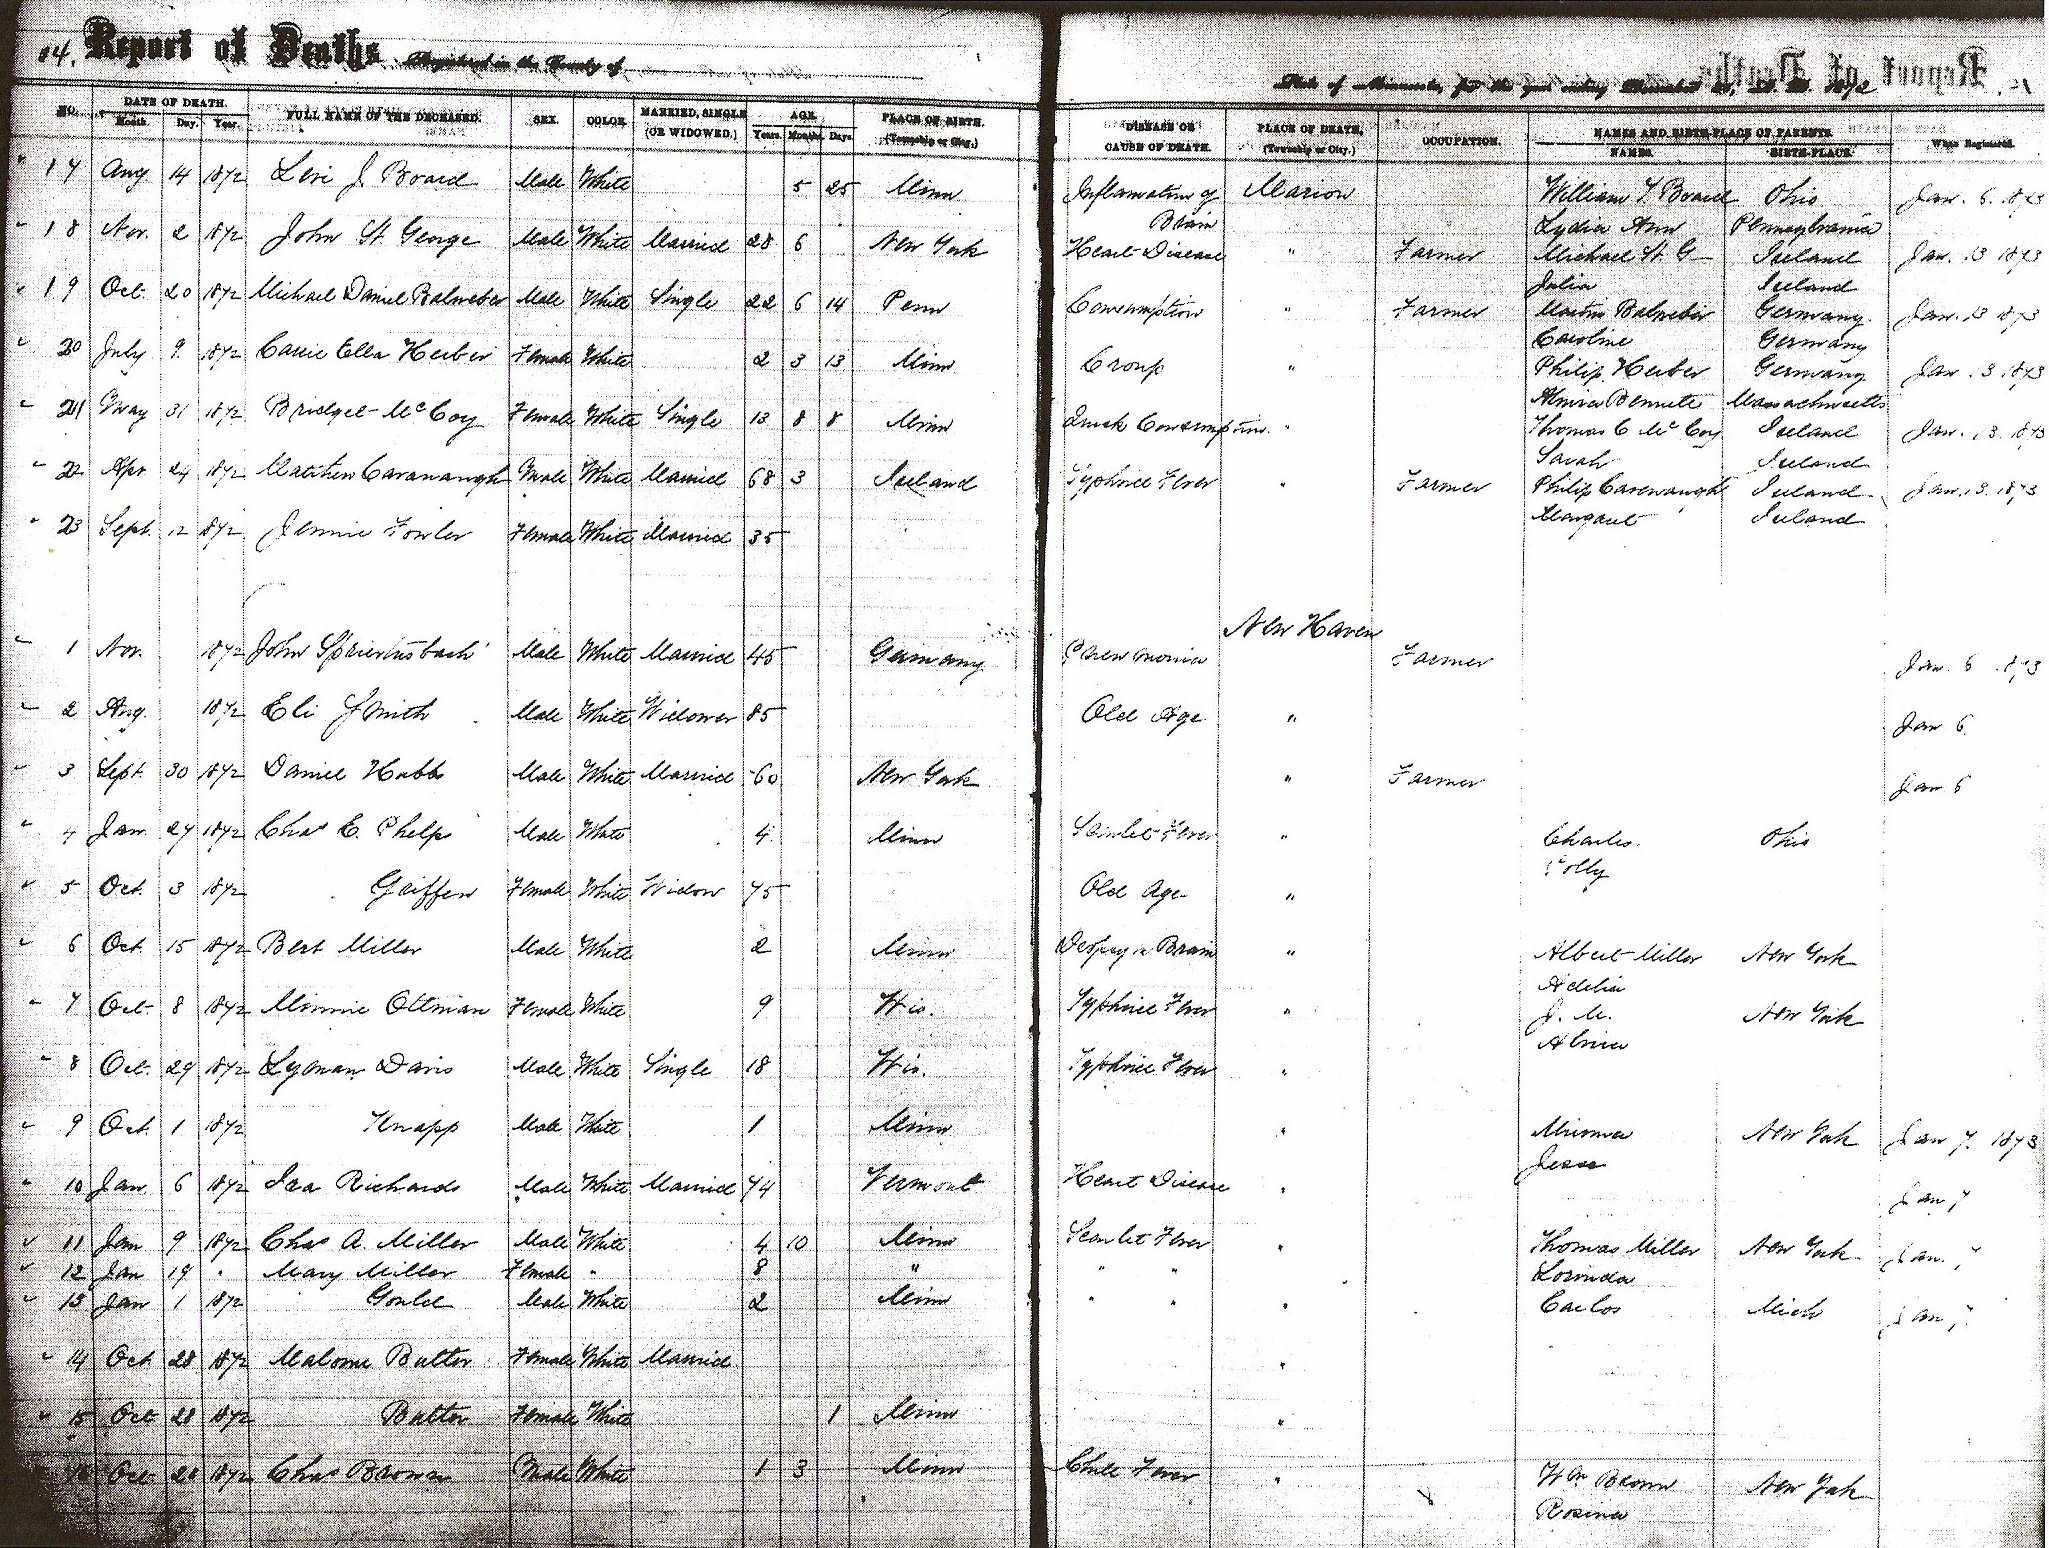 14. Report of Deaths Registered in the County of
State of Minnesota, for the year ending December 31, A. D. 1872
NO. DATE OF DEATH. FULL NAME OF THE DECEASED. SEX. COLOR. MARRIED, SINGLE AGE. PLACE OF BIRTH. DISEASE OR PLACE OF DEATH, OCCUPATION. NAMES AND BIRTH-PLACE OF PARENTS. When Registered.
Month. Day. Year. (OR WIDOWED.) Years. Months. Days. (Township or City.) CAUSE OF DEATH. (Township or City.) NAMES. BIRTH-PLACE.
17 Aug 14 1872 Levi J Board Male White 5 25 Minn Inflamation of Marion William T Board Ohio Jan. 6. 1873
Brain Lydia Ann Pennsylvania
18 Nov. 2 1872 John St George Male White Married 28 6 New York Heart Disease " Farmer Michael St G Ireland Jan. 13 1873
Julia Ireland
19 Oct. 20 1872 Michael Daniel Balweber Male White Single 22 6 14 Penn Consumption " Farmer Martin Balweber Germany Jan. 13 1873
Caroline Germany
20 July 9 1872 Carrie Ella Heiber Female White 2 3 13 Minn Croup " Philip Heiber Germany Jan. 13. 1873
Almira Bennett Massachusetts
21 May 31 1872 Bridget McCoy Female White Single 13 8 8 Minn Quick Consumption " Thomas C McCoy Ireland Jan. 13. 1873
Sarah Ireland
22 Apr 24 1872 Matthew Cavanaugh Male White Married 68 3 Ireland Typhoid Fever " Farmer Philip Cavenaugh Ireland Jan. 13. 1873
Margaret Ireland
23 Sept. 12 1872 Jennie Fowler Female White Married 35
New Haven
1 Nov. 1872 John Male White Married 45 Germany Pneumonia Farmer Jan. 6 1873
2 Aug. 1872 Eli Smith Male White Widower 85 Old Age " Jan 6
3 Sept. 30 1872 Daniel Hubb Male White Married 60 New York " Farmer Jan 6
4 Jan. 27 1872 Chas E. Phelps Male White 4 Minn Scarlet Fever " Charles Ohio
Polly
5 Oct. 3 1872 Griffen Female White Widow 75 Old Age "
6 Oct. 15 1872 Bert Miller Male White 2 Minn Brain " Albert Miller New York
Adelia
7 Oct. 8 1872 Minnie Ottman Female White 9 Wis. Typhoid Fever " J. M. New York
Almira
8 Oct. 29 1872 Lyman Davis Male White Single 18 Wis. Typhoid Fever "
9 Oct. 1 1872 Knapp Male White 1 Minn " New York Jan 7. 1873
Jesse
10 Jan 6 1872 Ira Richards Male White Married 74 Vermont Heart Disease " Jan 7
11 Jan 9 1872 Chas A. Miller Male White 4 10 Minn Scarlet Fever " Thomas Miller New York Jan. 7
12 Jan 19 " Mary Miller Female " 8 " " " Lorinda
13 Jan 1 1872 Gould Male White 2 Minn " " " Carlos Mich Jan 7
14 Oct 28 1872 Butler Female White Married "
15 Oct 28 1872 Butler Female White 1 Minn "
16 Oct 28 1872 Chas Brown Male White 1 3 Minn Chill Fever " Wm Brown New York
Rosina